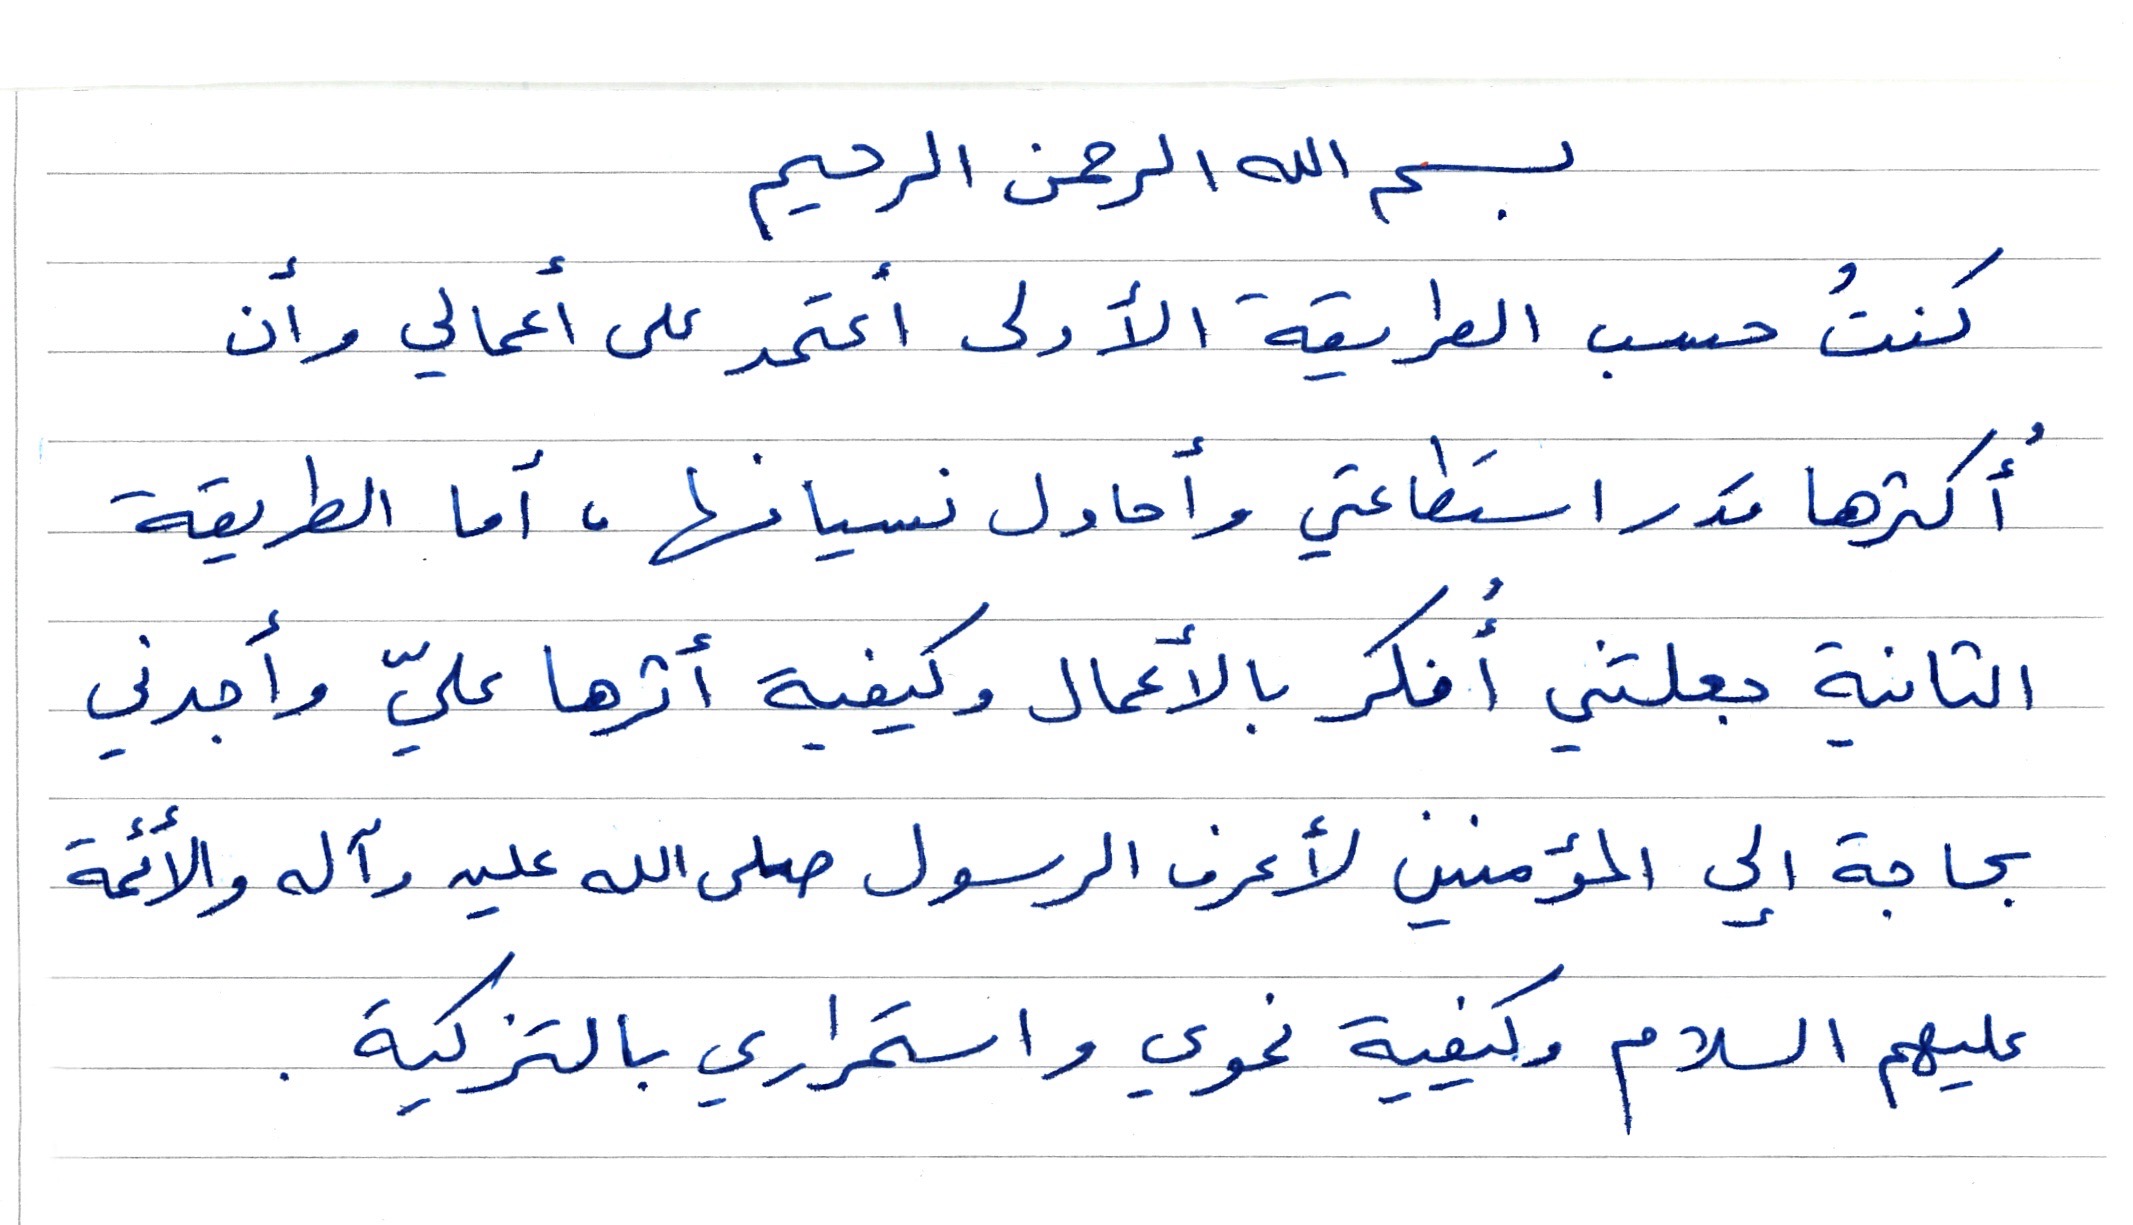 بسم الله الرحمن الرحيم
كنتُ حسب الطريقة الأولى أعتمد على أعمالي وأن
أُكثرها قدر استطاعتي وأحاول نسيانها ، أما الطريقة
الثانية جعلتني أُفكر بالأعمال وكيفية أثرها عليّ وأجدني
بحاجة إلى المؤمنين لأعرف الرسول صلى الله عليه وآله والأئمة
عليهم السلام وكيفية نموي واستمراري بالتزكية .